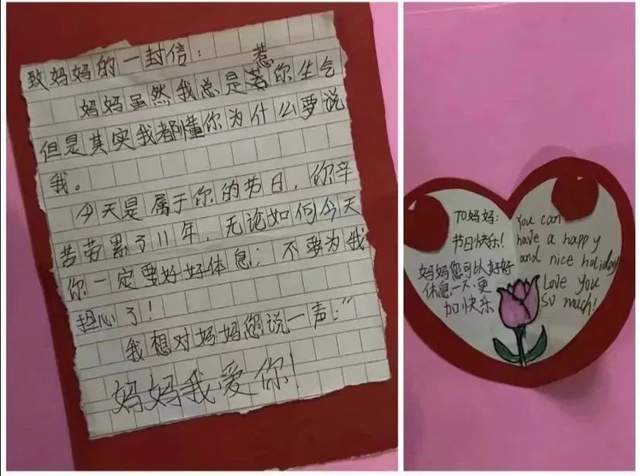 致妈妈的一封信:
妈妈虽然我总是惹你生气
但是其实我都懂你为什么要说
我。
今天是属于你的节日，你辛
苦劳累了11年，无论如何今天
你一定要好好休息；不要为我
担心了!
我想对妈妈您说一声:"
妈妈我爱你!
TO妈妈:
节日快乐!
妈妈您可以好好
休息一天,更
加快乐
You can
have a happy
and nice holiday!
Love you
so much!